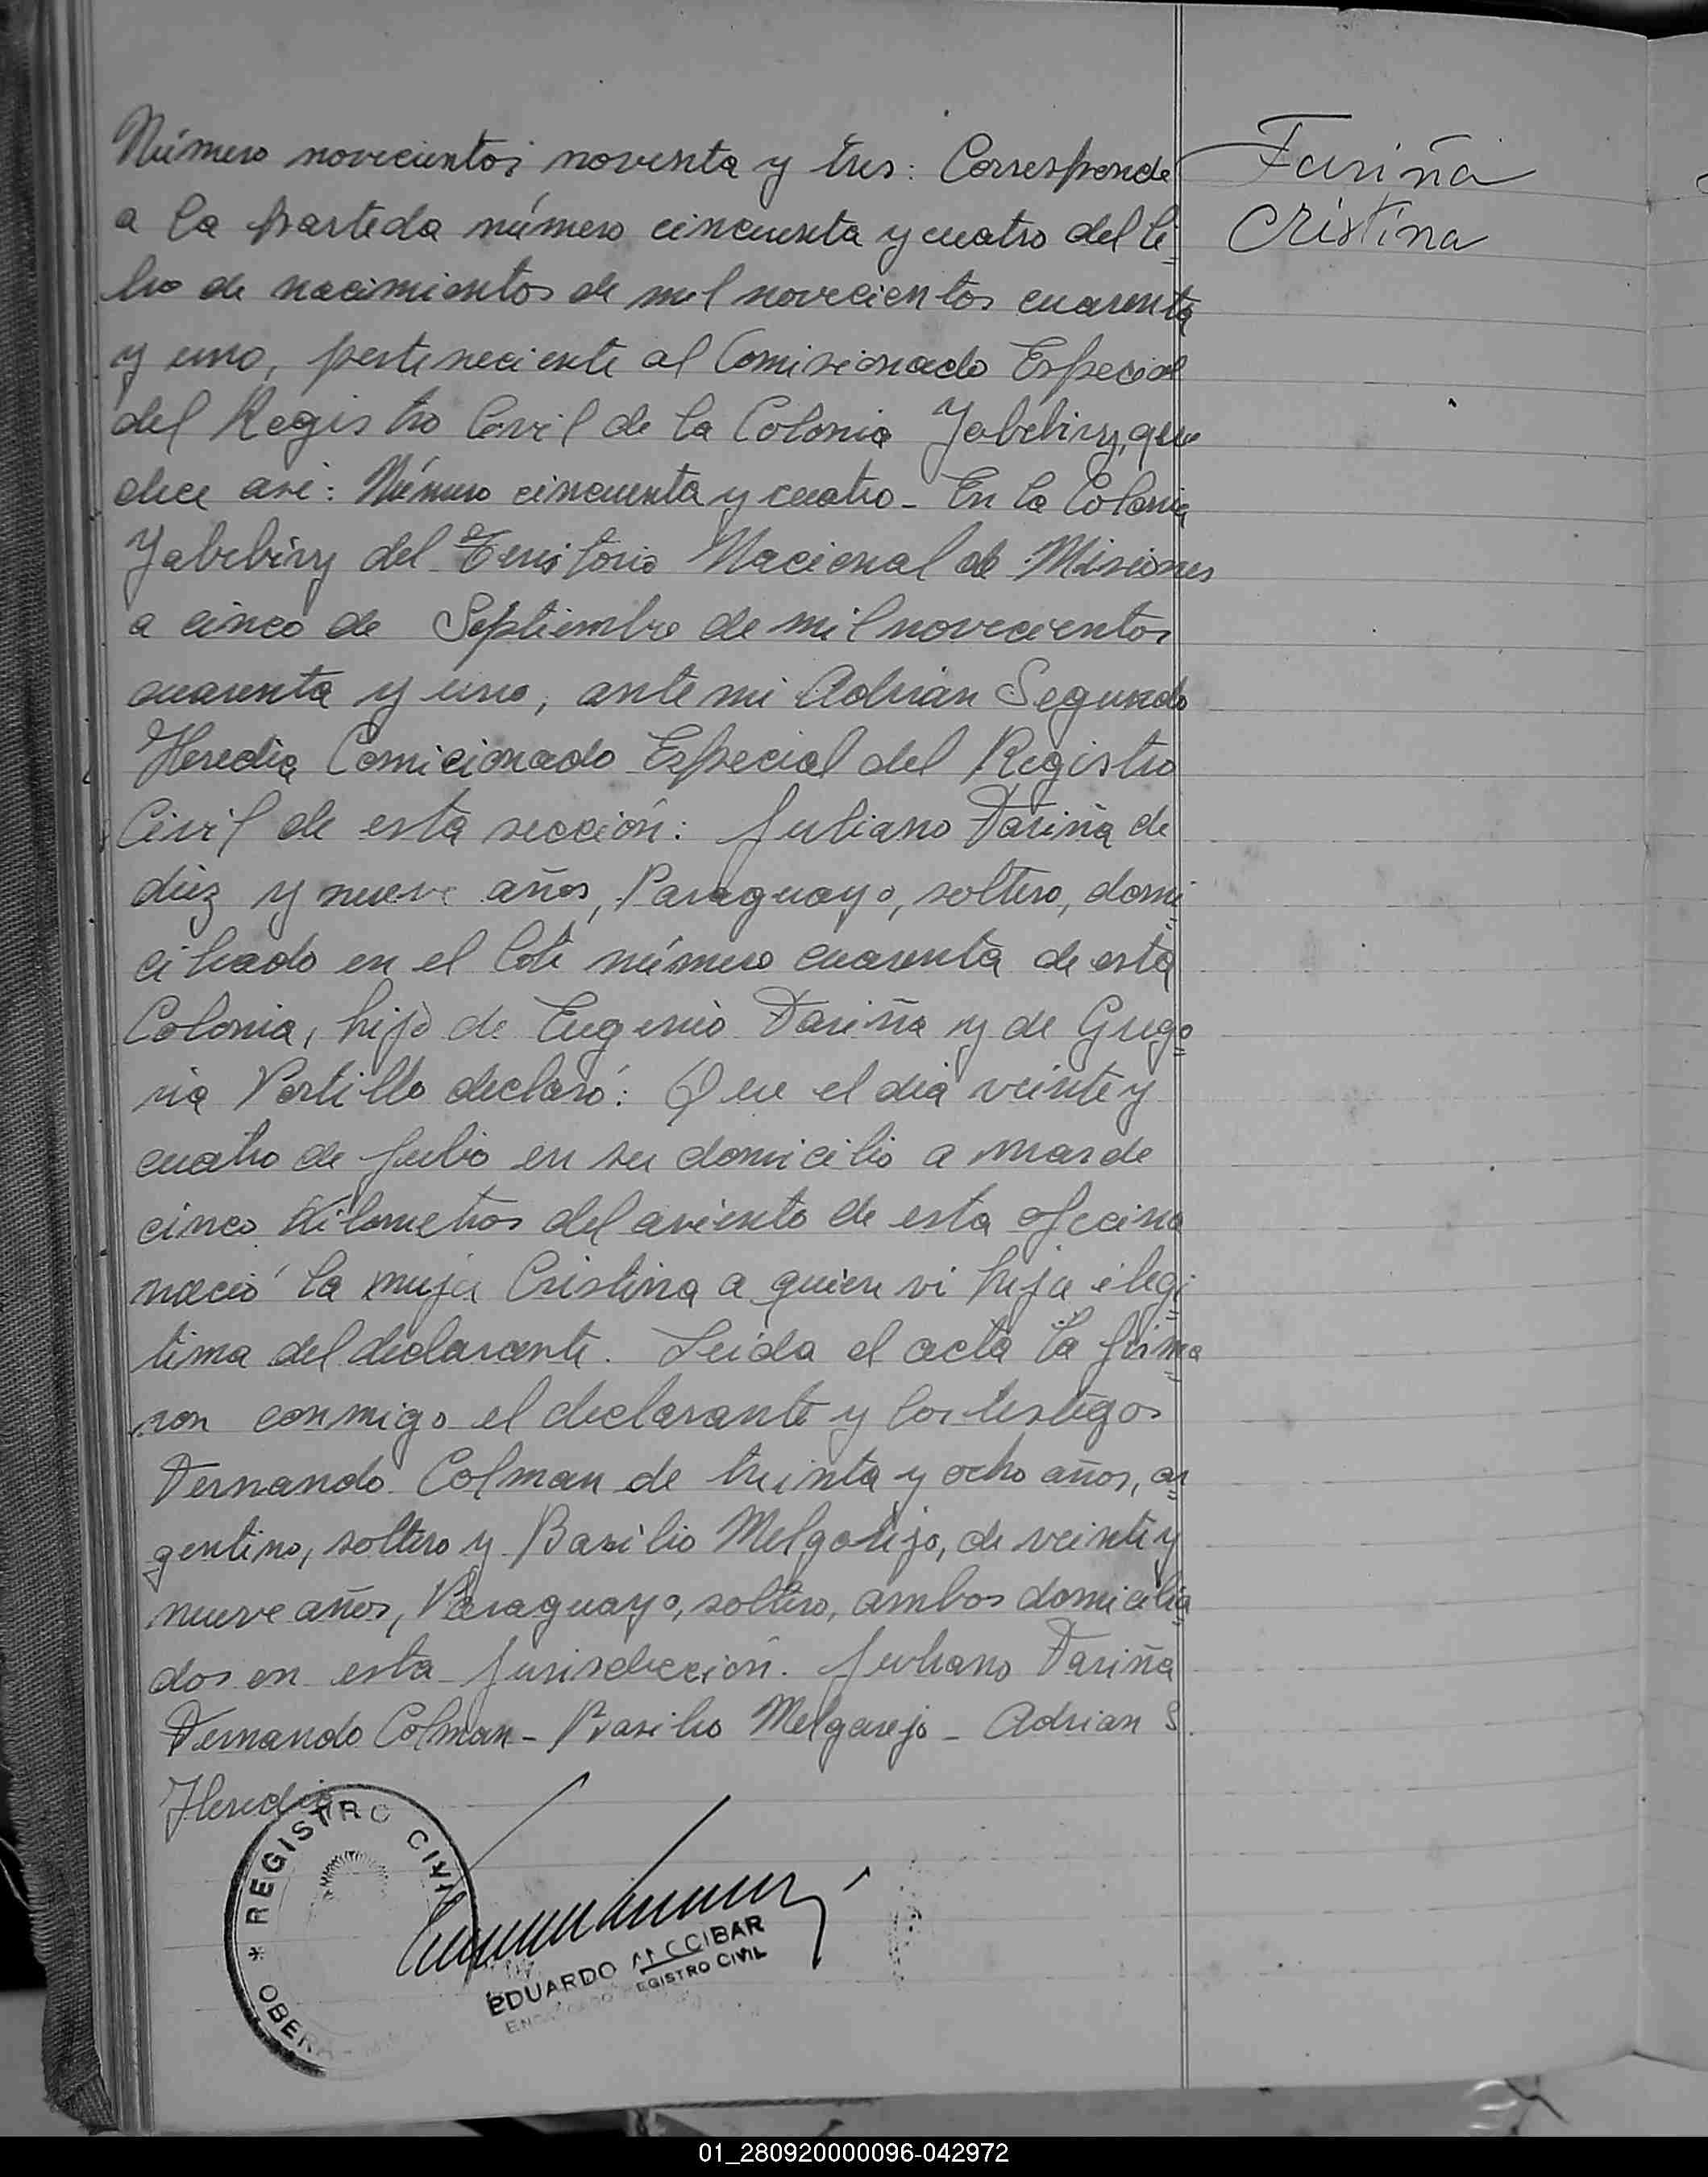 Número novecientos noventa y tres: Corresponde
a la partida número cincuenta y cuatro del li=
bro de nacimientos de mil novecientos cuarenta
y uno, perteneciente al Comisionado Especial
del Registro Civil de la Colonia Yabebiry, que
dice asi: Número cincuenta y cuatro - En la Colonia
Yabebiry del Territorio Nacional de Misiones
a cinco de Septiembre de mil novecientos
cuarenta y uno, ante mi Adrian Segundo
Heredia Comicionado Especial del Registro
Civil de esta sección: Juliano Fariña de
diez y nueve años, Paraguayo, soltero, domi=
ciliado en el lote número cuarenta de esta
Colonia, hijo de Eugenio Fariña y de Grego=
ria Portillo declaró: Que el dia veinte y
cuatro de Julio en su domicilio a mas de
cinco Kilometros del asiento de esta oficina
nació la mujer Cristina a quien vi hija ilegi=
tima del declarante. Leida el acta la firma=
ron conmigo el declarante y los testigos
Fernando Colman de treinta y ocho años, ar=
gentino, soltero y Basilio Melgarejo, de veinte y
nueve años, Paraguayo, soltero, ambos domicilia=
dos en esta Jurisdicción. Juliano Fariña
Fernando Colman - Basilio Melgarejo - Adrian S.
Heredia
Fariña
Cristina
* REGISTRO CIVIL
OBERA
EDUARDO ALCCIBAR
ENCARGADO REGISTRO CIVIL
01_280920000096-042972